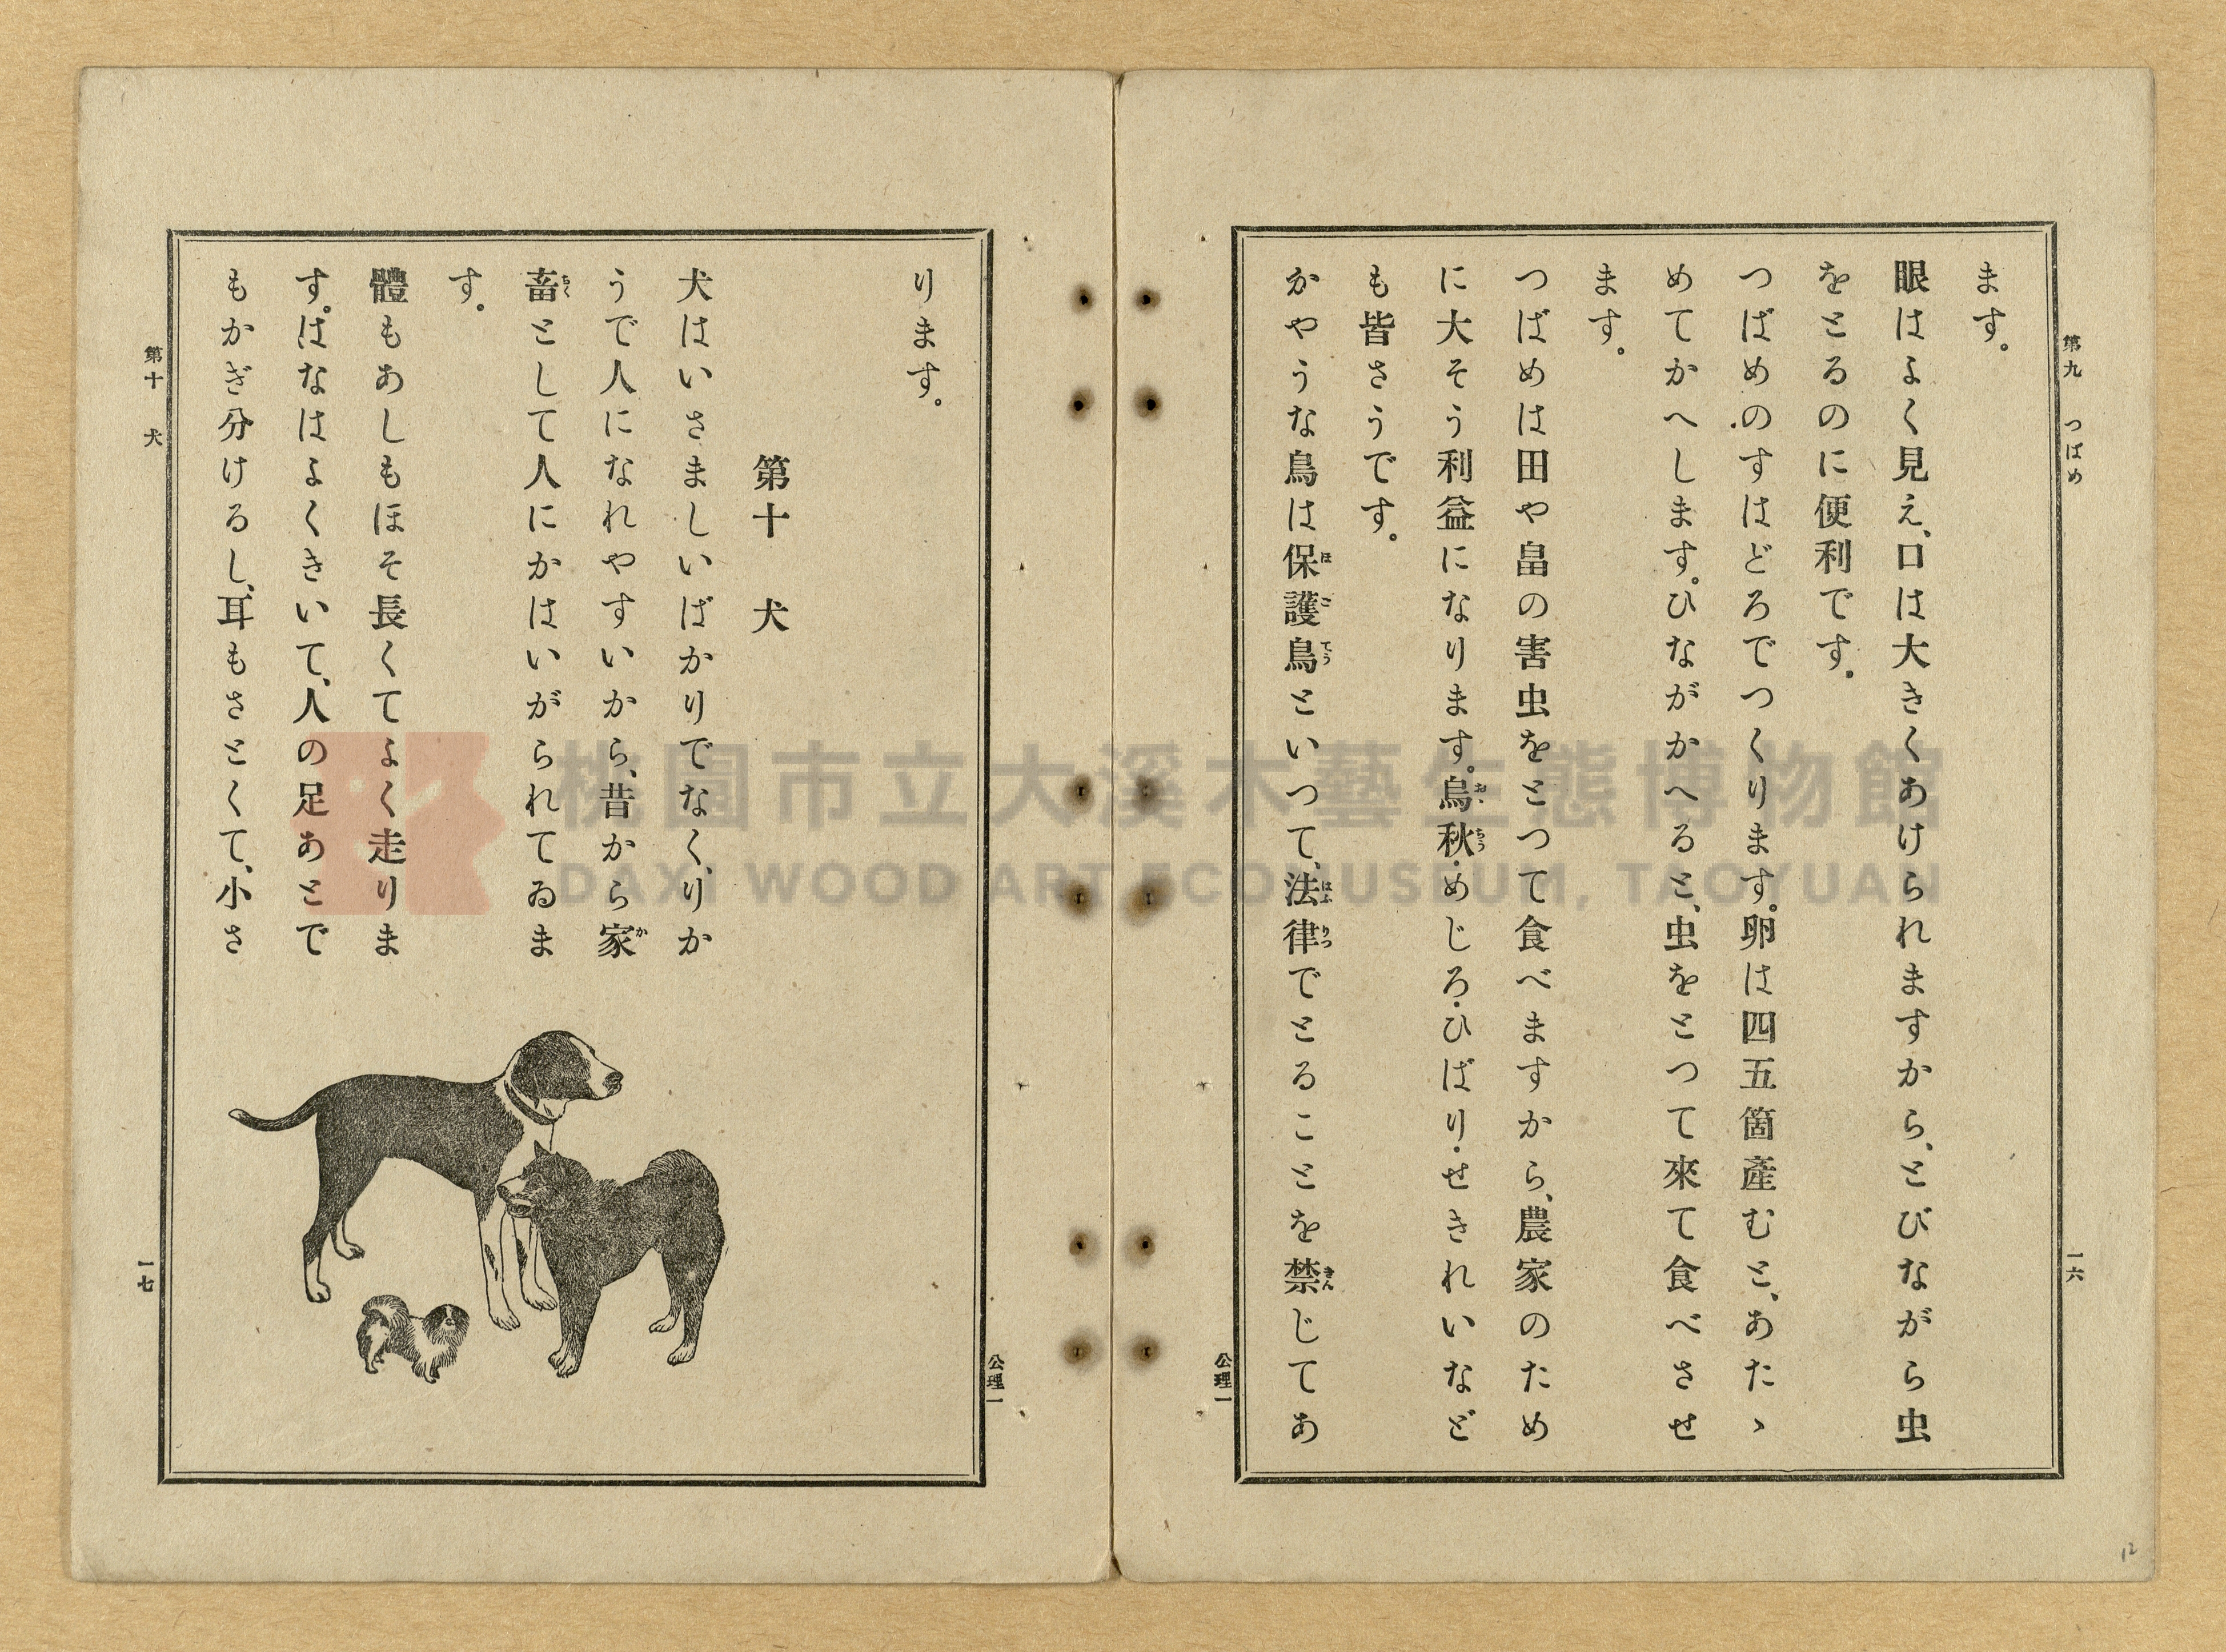 第九 つばめ
一六
ます。
眼はよく見え、口は大きくあけられますから、とびながら虫
をとるのに便利です。
つばめのすはどろでつくります。卵は四五箇產むと、あたゝ
めてかへします。ひながかへると、虫をとつて來て食べさせ
ます。
つばめは田や畠の害虫をとつて食べますから、農家のため
に大そう利益になります。烏秋・めじろ・ひばり・せきれいなど
も皆さうです。
かやうな鳥は保護鳥といつて、法律でとることを禁じてあ
公理一
ります。
第十 犬
犬はいさましいばかりでなく、りか
うで人になれやすいから、昔から家
畜として人にかはいがられてゐま
す。
體もあしもほそ長くてよく走りま
す。はなはよくきいて、人の足あとで
もかぎ分けるし、耳もさとくて、小さ
公理一
第十 犬
一七
12
桃園市立大溪木藝生態博物館
DAXI WOOD ART ECOMUSEUM, TAOYUAN